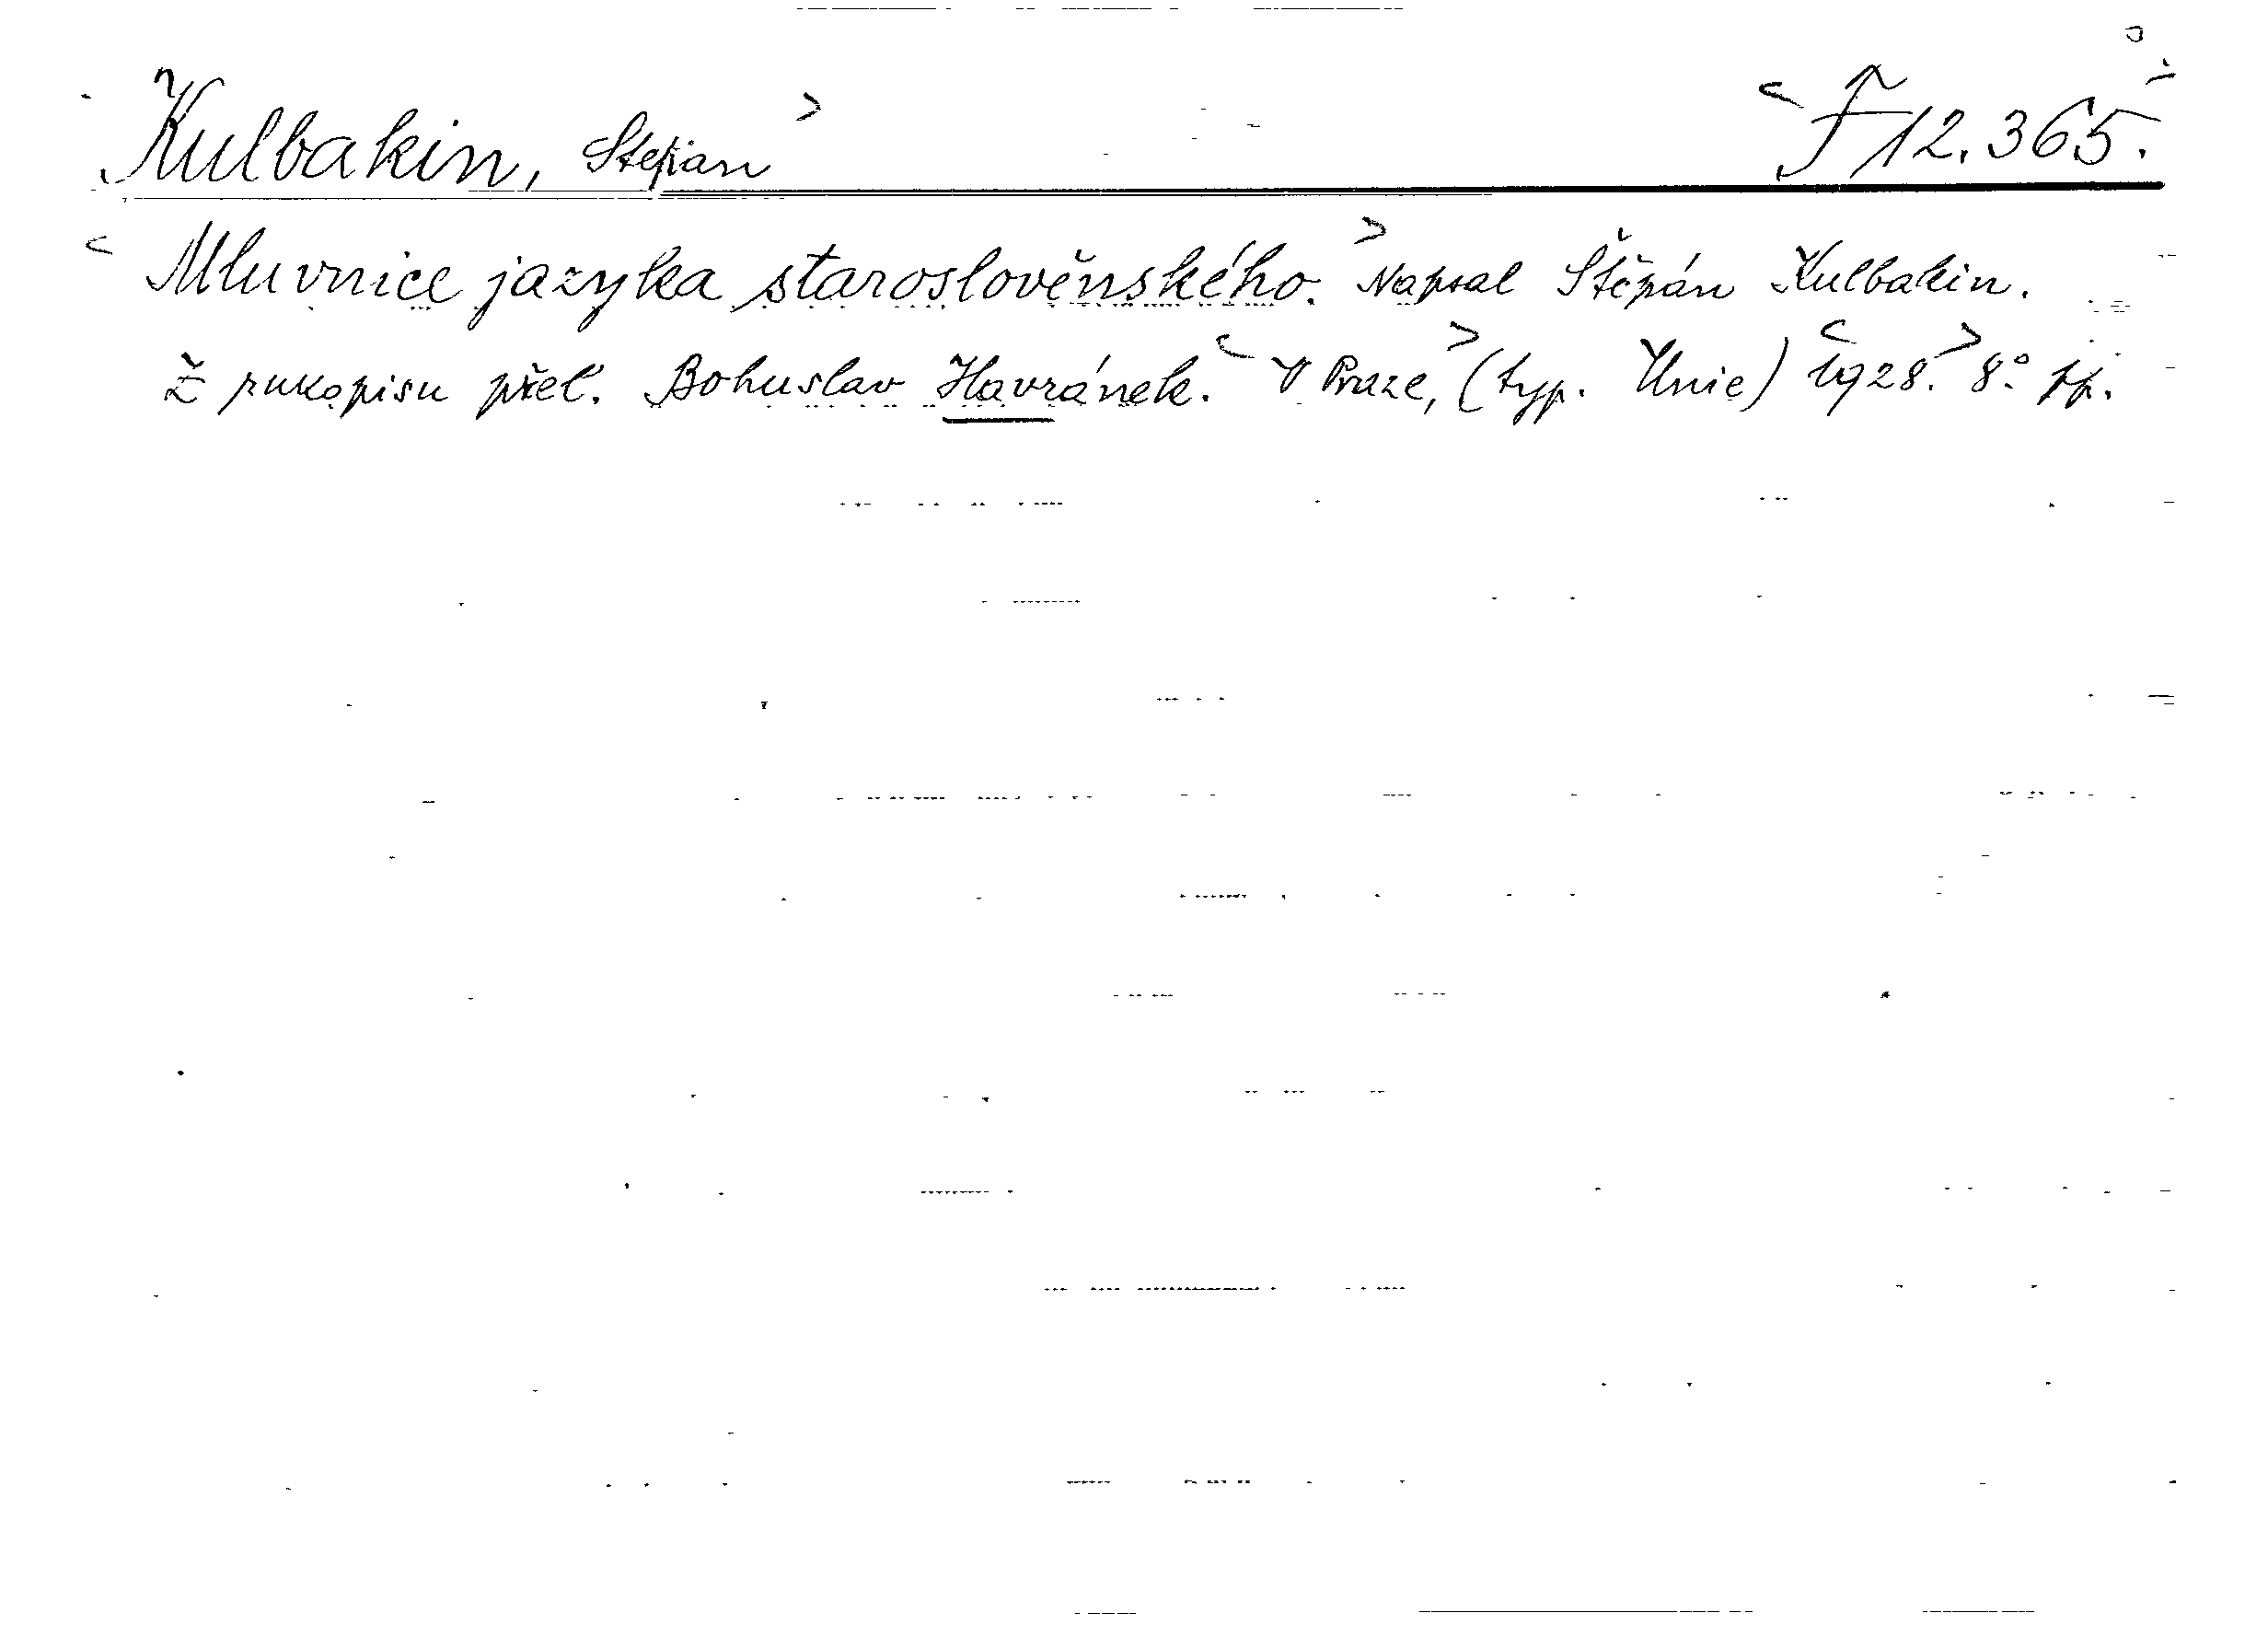 Kulbakin, Stepan F 12.365.
Mluvnice jazyka staroslověnského. Napsal Štěpán Kulbakin.
Z rukopisu přel. Bohuslav Havránek. V Praze, (typ. Unie) 1928. 8.°